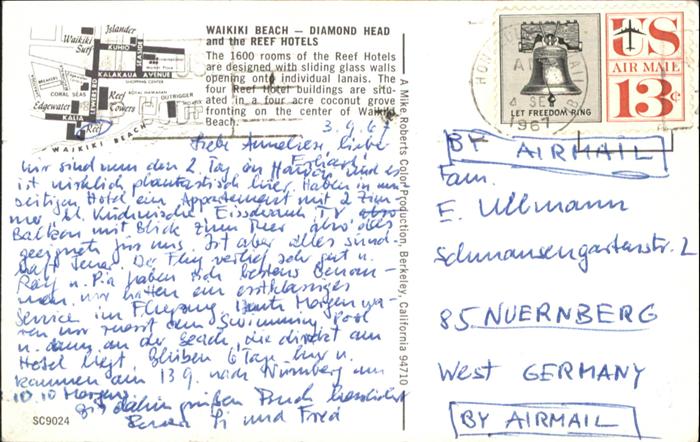 WAIKIKI BEACH — DIAMOND HEAD
and the REEF HOTELS
The 1600 rooms of the Reef Hotels
are designed with sliding glass walls
opening onto individual lanais. The
four Reef Hotel buildings are situ-
ated in a four acre coconut grove
fronting on the center of Waikiki
Beach.
Islander
Waikiki
Surf
KUHIO
KALAKAUA AVENUE
SHOPPING CENTER
ROYAL HAWAIIAN
CORAL SEAS
LEWERS RD
Reef
Towers
OUTRIGGER
Edgewater
KALIA
Reef
WAIKIKI BEACH
A Mike Roberts Color Production, Berkeley, California 94710
3.9.67
Liebe Annelies, lieber
Erhard!
Wir sind nun den 2. Tag in Hawaii und es
ist wirklich phantastisch hier. Haben im
seitigen Hotel ein Appartement mit 2 Zim
mer kl. Küche Eisschrank TV
Balkon mit Blick zum Meer also alles
geeignet für uns. Ist aber alles sünd-
haft teuer. Der Flug verlief sehr gut u.
Ralf u. Pia haben sich bestens benom-
men. wir hatten ein erstklassiges
Service im Flugzeug Heute Morgen wa-
ren wir zuerst dem Swimming Pool
u. dann an der Beach, die direkt am
Hotel liegt. Bleiben 6 Tage hier u.
kommen am 13 9. nach Nürnberg um
10.10 Morgens
Bis dahin grüßen Euch herzlichst
und Fred
SC9024
LET FREEDOM RING
US
AIR MAIL
13¢
SEP
1967
BY AIRMAIL
Fam.
E. Ullmann
Schmausengartenstr. 2
85 NUERNBERG
West GERMANY
BY AIRMAIL